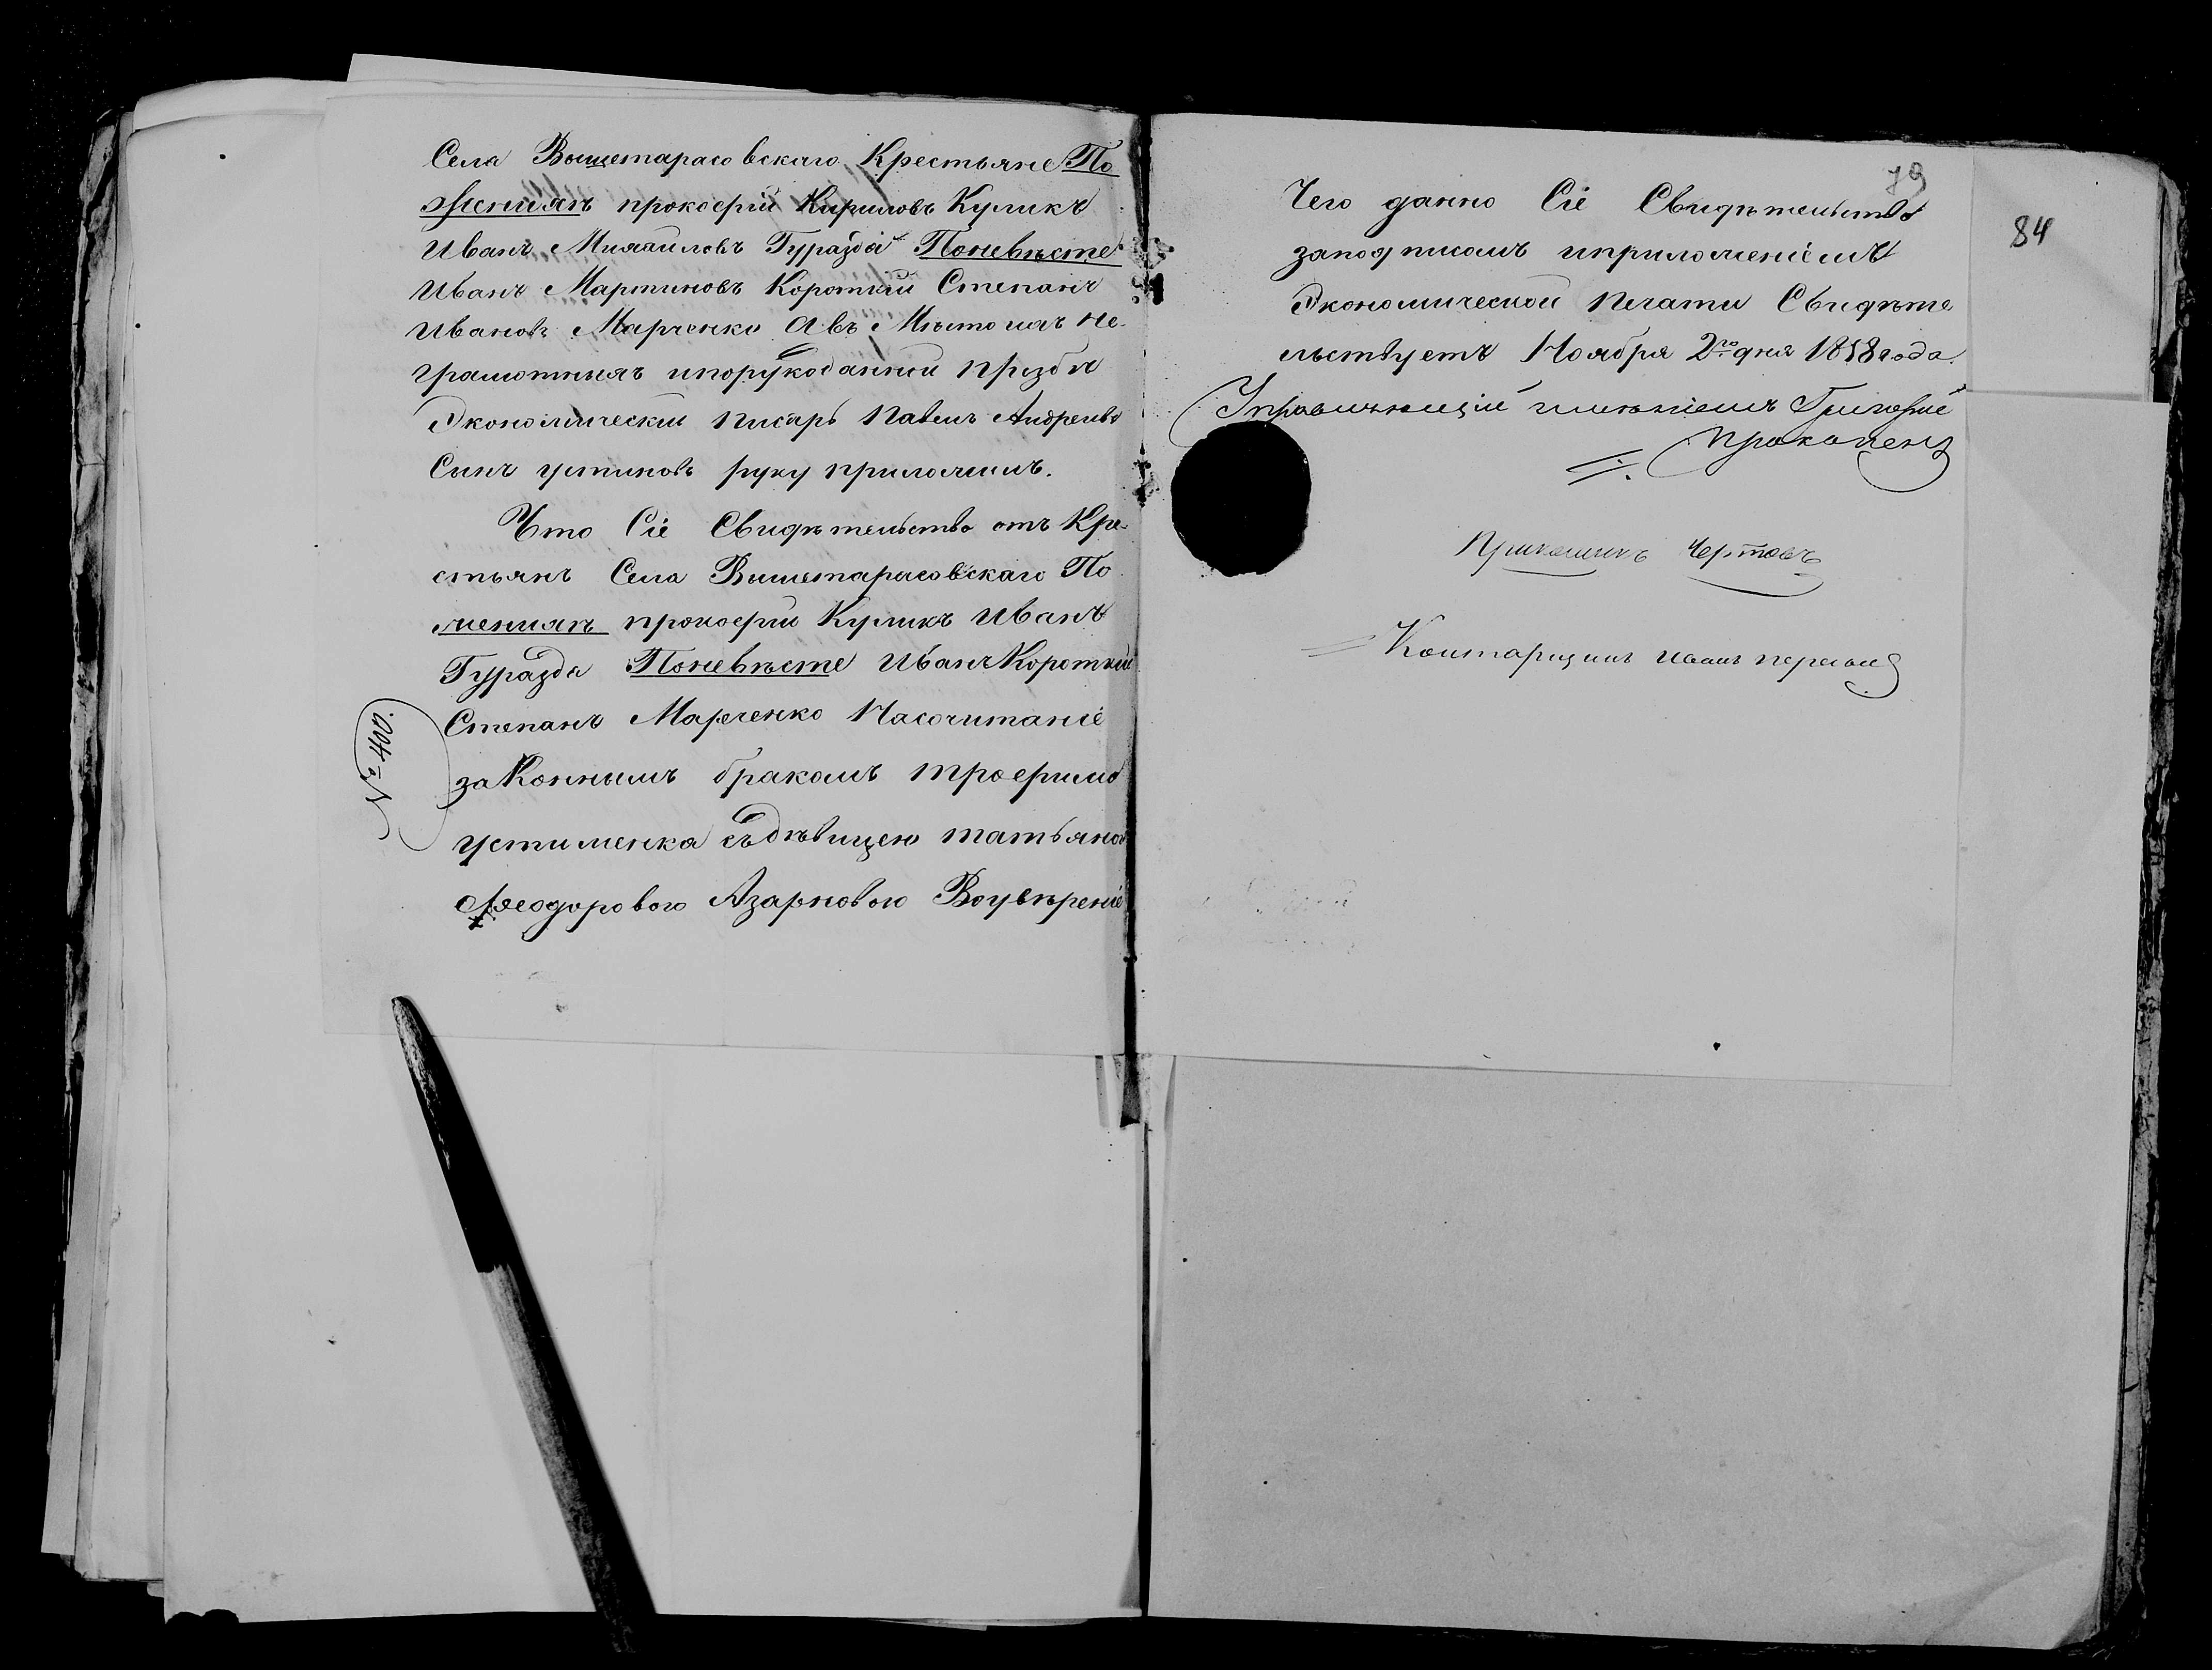 Села Вышетарасовскаго Крестьяне По
женихѣ прокофій Кириловъ Куликъ
Иванъ Михайловъ Гуразда Поневѣсте
Иванъ Мартиновъ Короткий Степанъ
Ивановъ Марченко Авъ Мѣсто ихъ не-
грамотныхъ ипорукоданной прозбѣ
Экономический писарь Павелъ Андреивъ
Сынъ устиновъ руку приложилъ.
Что Сіе Свидѣтельство отъ Кре-
стьянъ Села Вышетарасовскаго По
женихѣ прокофий Куликъ Иванъ
Гуразда Поневѣсте Иванъ Короткий
Степанъ Марченко Насочитаніе
законнымъ бракомъ трофима
устименка съ дѣвицею татьяною
Феодоровою Азарновою Воувѣреніе
№ 400.
79
84
Чего данно Сіе Свидѣтельство
заподписомъ иприложеніемъ
Экономической Печати Свидѣте
льствуетъ Ноября 2го дня 1858 года.
Управляющій имѣніемъ Григорий
Прокопенко
Прикащикъ Чертовъ
Конторщикъ Иванъ